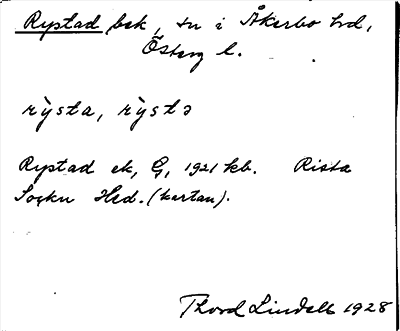 Rystad bsk, sn i Åkerbo hd,
Österg l.
rỳsta, rỳstə
Rystad ek, G, 1921 kb. Rista
Sockn Hed. (kartan).
Thord Lindell 1928